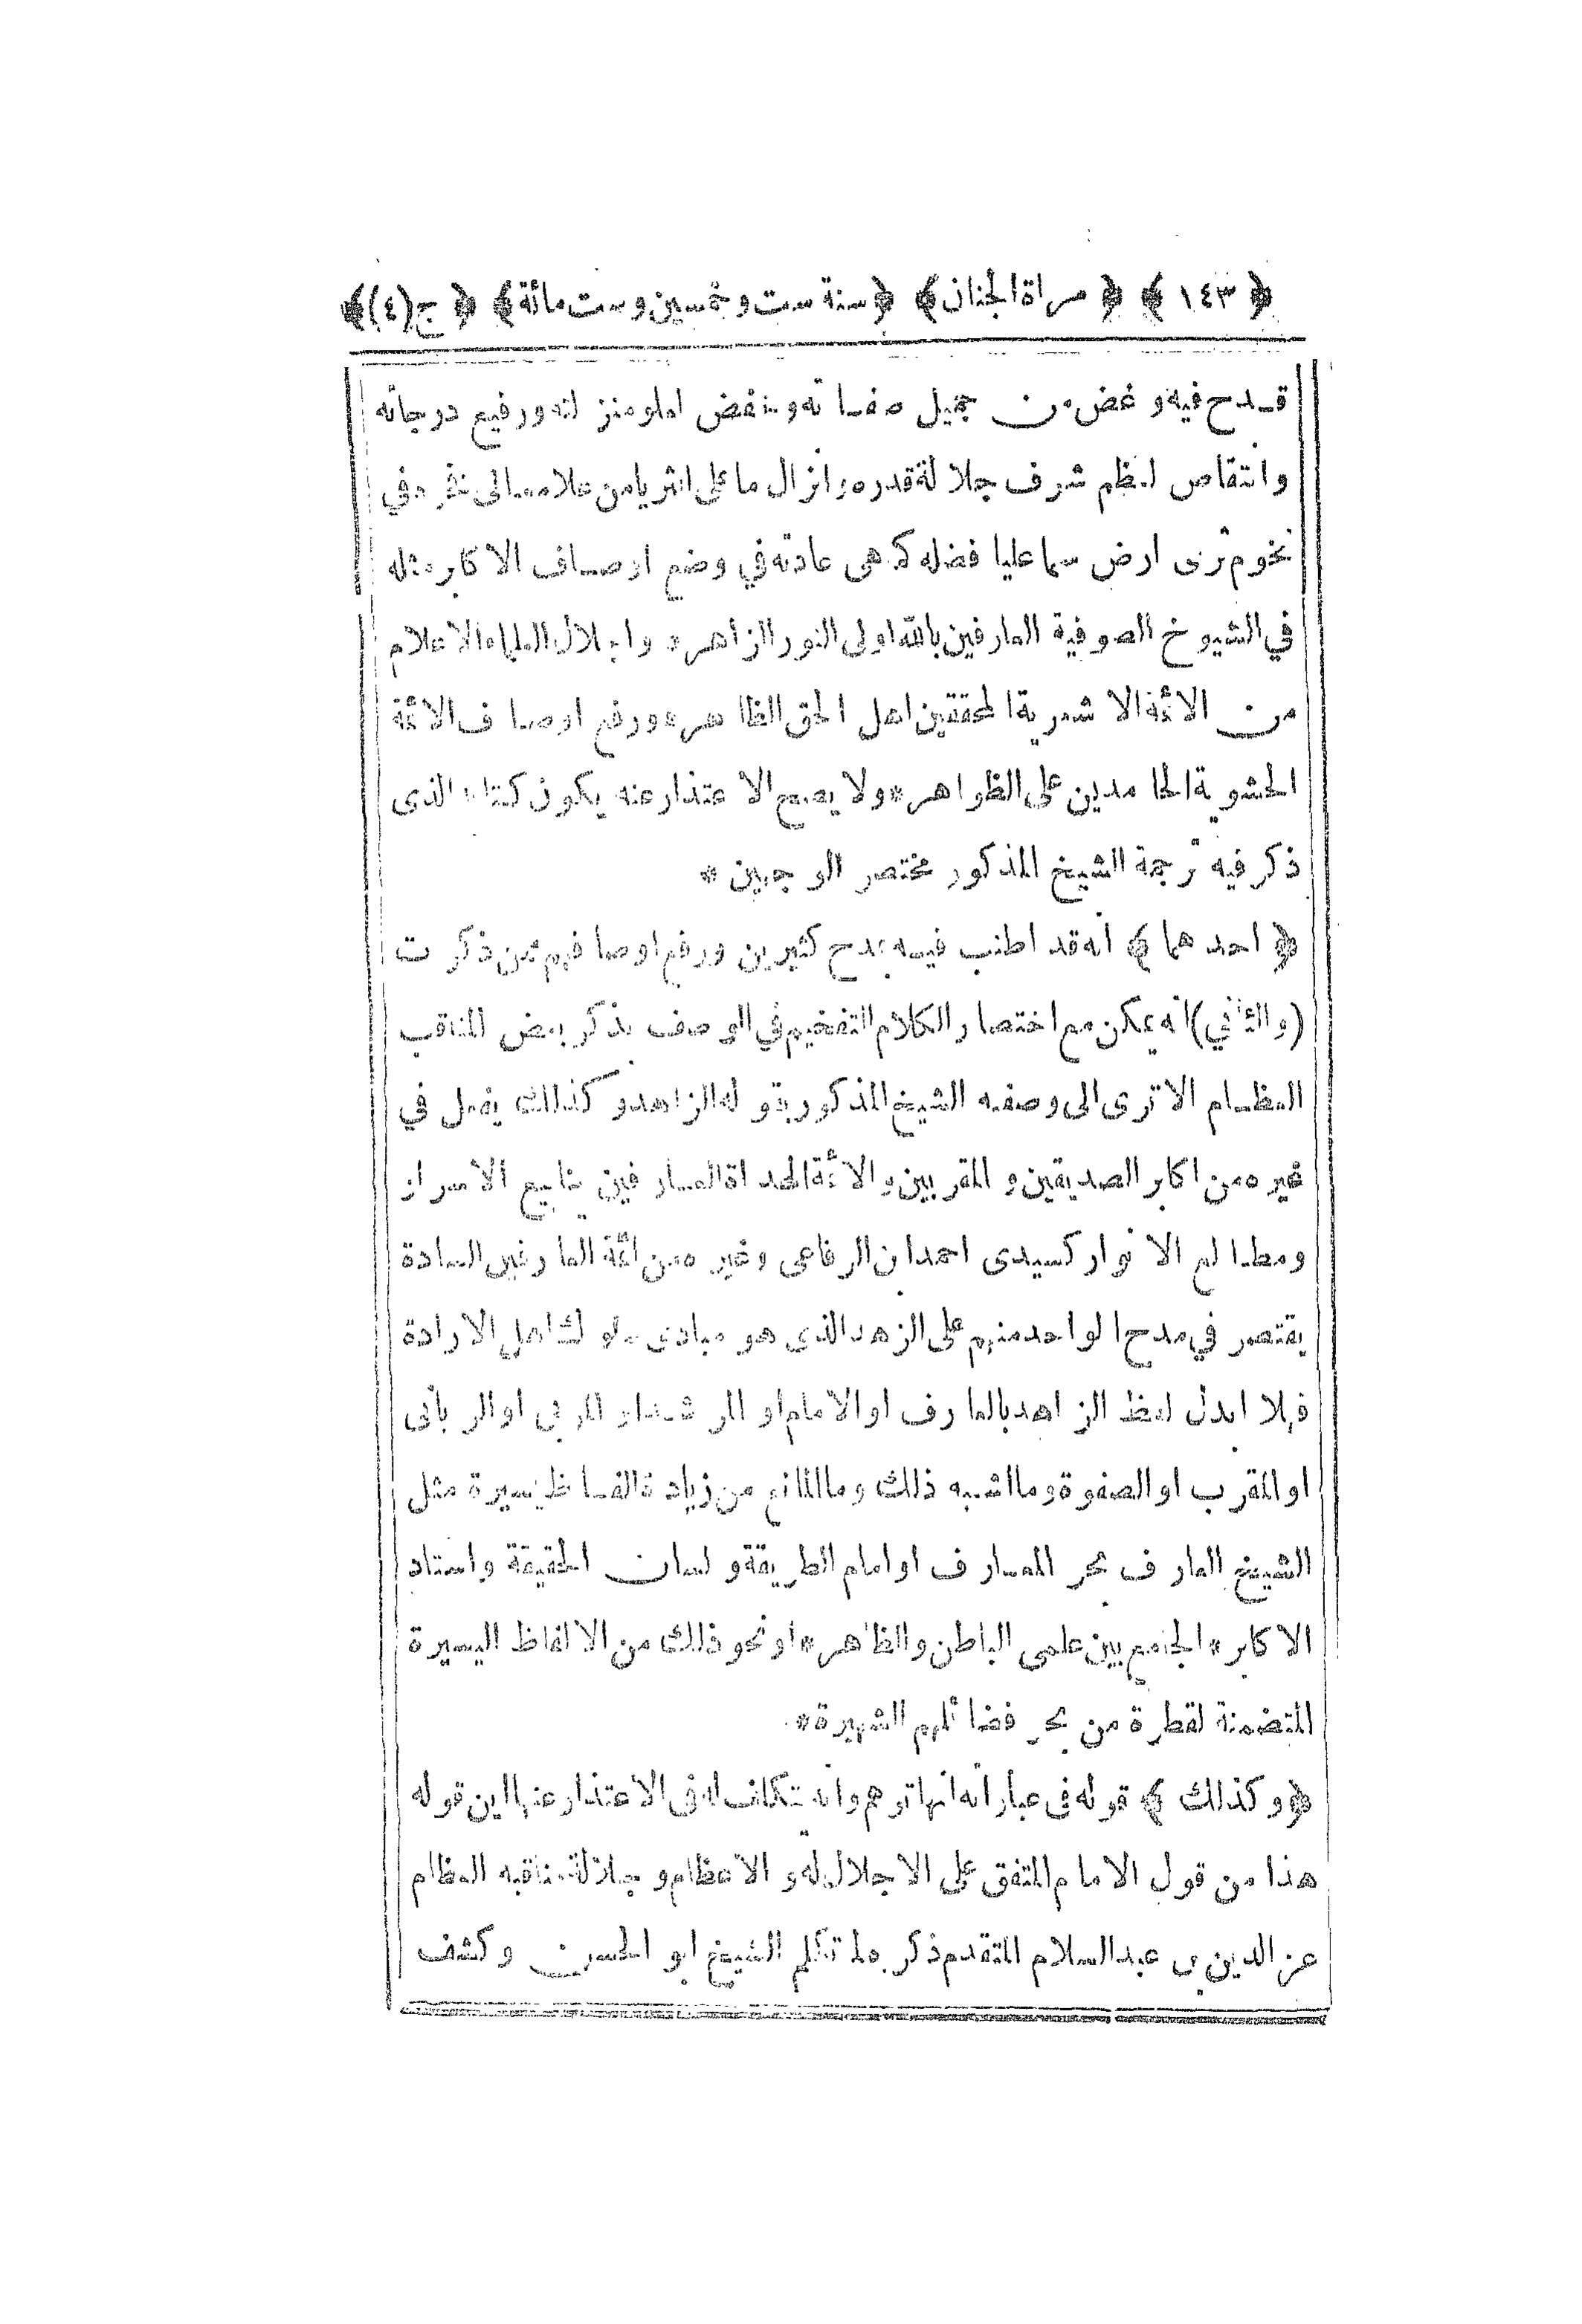 ﴿ ١٤٣ ﴾ ﴿ مراة الجنان ﴾ ﴿ سنة ست وخمسين وست مائة ﴾ ﴿ ج (٤) ﴾
قدح فيه وغض من جميل صفاته وخفض لعلو منزلته ورفيع درجاته
وانتقاص لعظم شرف جلالة قدره وانزال ما على الثريا من علا معالى فخره في
تخوم ثرى ارض سما عليا فضله كما هى عادته في وضع اوصاف الاكابر مثله
في الشيوخ الصوفية العارفين بالله اولى النور الزاهر * واجلال العلماء الاعلام
من الائمة الاشعرية المحققين اهل الحق الظاهر * ورفع اوصاف الائمة
الحشوية الجامدين على الظواهر * ولا يصح الاعتذار عنه يكون كتابه الذى
ذكر فيه ترجمة الشيخ المذكور مختصر الوجهين *
﴿ احدهما ﴾ انه قد اطنب فيه بمدح كثيرين ورفع اوصافهم ممن ذكرت
(والثانى) انه يمكن مع اختصار الكلام التفخيم في الوصف بذكر بعض المناقب
العظام الا ترى الى وصفه الشيخ المذكور بقوله الزاهد وكذلك يفعل في
غيره من اكابر الصديقين والمقربين والائمة الهداة العارفين ينابيع الاسرار
ومطالع الانوار كسيدى احمد ابن الرفاعى وغيره من ائمة العارفين السادة
يقتصر في مدح الواحد منهم على الزهد الذى هو مبادى سلوك اهل الارادة
فهلا ابدل لفظ الزاهد بالعارف او الامام او المرشد او المربى او الربانى
او المقرب او الصفوة وما اشبه ذلك وما المانع من زيادة الفاظ يسيرة مثل
الشيخ العارف بحر المعارف او امام الطريقة ولسان الحقيقة واستاد
الاكابر * الجامع بين علمى الباطن والظاهر * او نحو ذلك من الالفاظ اليسيرة
المتضمنة لقطرة من بحر فضائلهم الشهيرة *
﴿ وكذلك ﴾ قوله فى عباراته انها توهم وانه تتكلف له فى الاعتذار عنها اين قوله
هذا من قول الامام المتفق على الاجلال له والاعظام وجلالة مناقبه العظام
عز الدين بن عبد السلام المتقدم ذكره لما تكلم الشيخ ابو الحسن وكشف